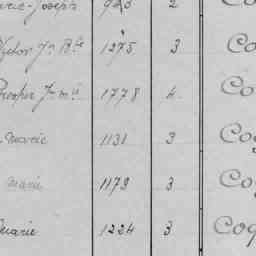 Marie-Joseph 923 2 Co
Victor Jn Bte 1275 3 Co
Prosper Jn M 1778 4 Co
Marie 1131 3 Coq
Marie 1179 3 Coq
Marie 1224 3 Coq